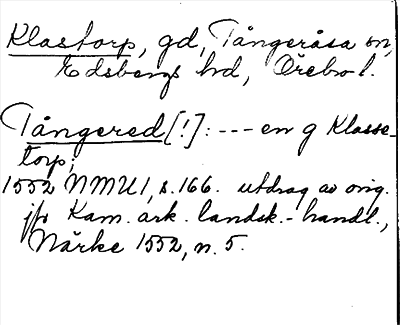 Klastorp, gd, Tångeråsa sn,
Edsbergs hd, Örebro l.
Tångered [!]: --- en g Klasse-
torp;
1552 NMU 1, s. 166. utdrag av orig.
jfr Kam. ark. landsk.-handl.,
Närke 1552, n. 5.